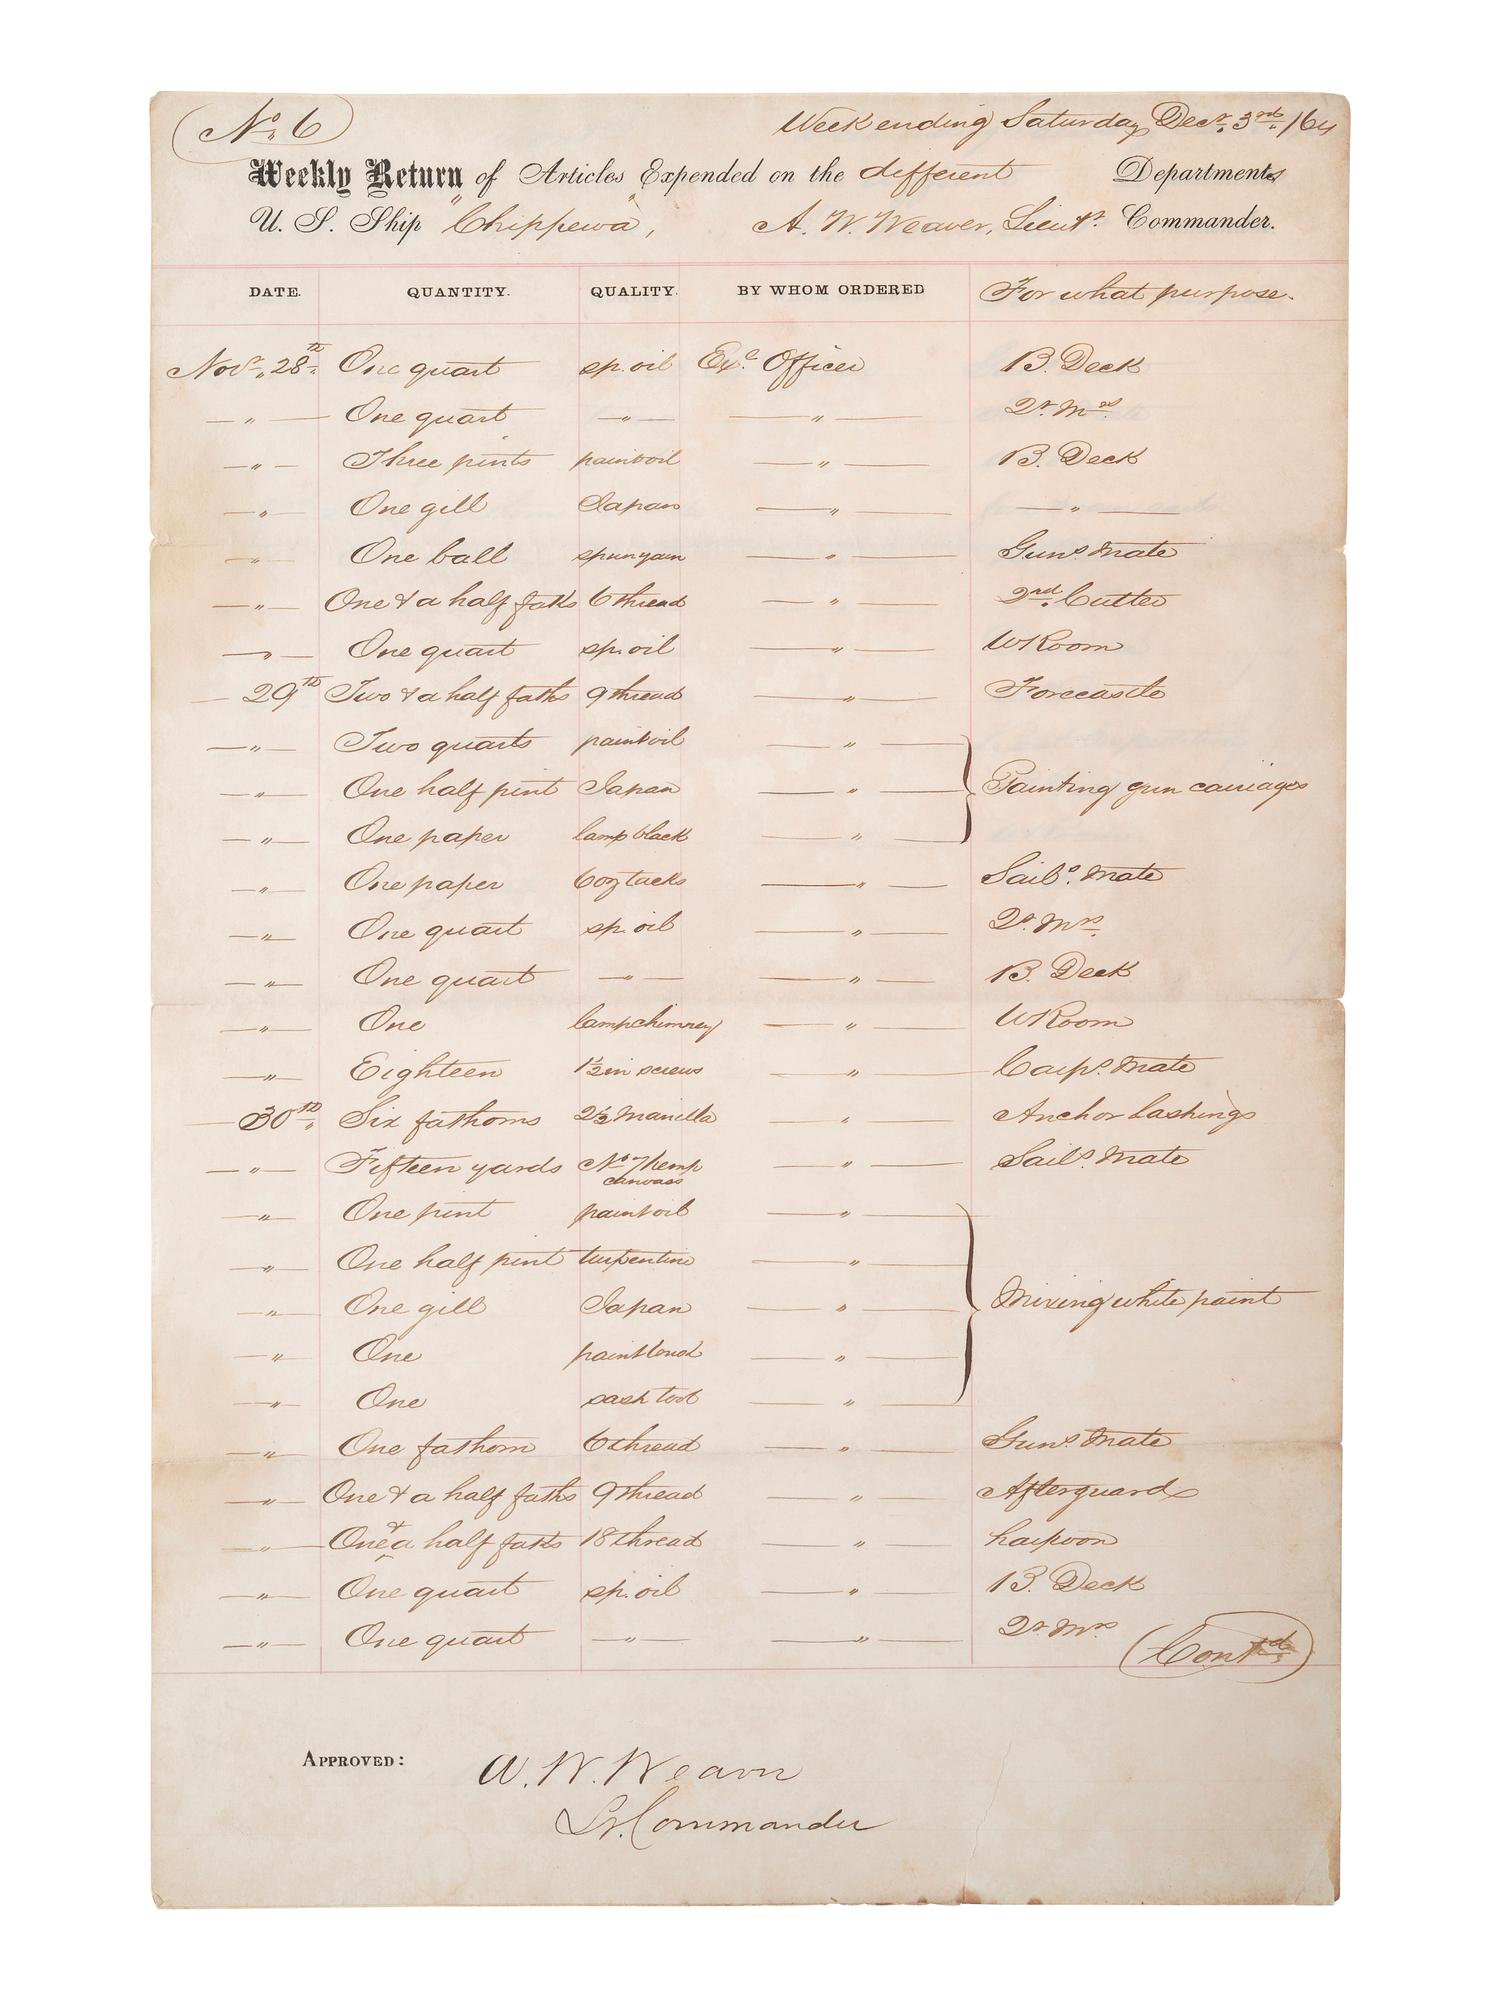 No. 6
Week ending Saturday, Decr. 3rd /64
Weekly Return of Articles Expended on the different Departments
U. S. Ship "Chippewa", A. W. Weaver, Lieut. Commander.
DATE. QUANTITY. QUALITY. BY WHOM ORDERED For what purpose.
Novr. 28th One quart sp. oil Exc. Officer B. Deck
" One quart " " Qr. Mrs
" Three pints paint oil " B. Deck
" One gill Japan " "
" One ball spunyarn " Guns. Mate
" One & a half faths 6 thread " 2nd Cutter
" One quart sp. oil " W Room
29th Two & a half faths 9 thread " Forecastle
" Two quarts paint oil "
" One half pint Japan " Painting gun carriages
" One paper lamp black "
" One paper 6 oz tacks " Sails. Mate
" One quart sp. oil " Qr. Mrs.
" One quart " " B. Deck
" One lamp chimney " W Room
" Eighteen 1½ in screws " Carps. Mate
30th Six fathoms 2½ Manilla " Anchor lashings
" Fifteen yards No. 7 hemp canvass " Sails. Mate
" One pint paint oil "
" One half pint turpentine "
" One gill Japan " Mixing white paint
" One paint brush "
" One sash tool "
" One fathom 6 thread " Guns. Mate
" One & a half faths 9 thread " Afterguard
" One & a half faths 18 thread " harpoon
" One quart sp. oil " B. Deck
" One quart " " Qr. Mrs
Contd.
APPROVED: A. W. Weaver
Lt. Commander